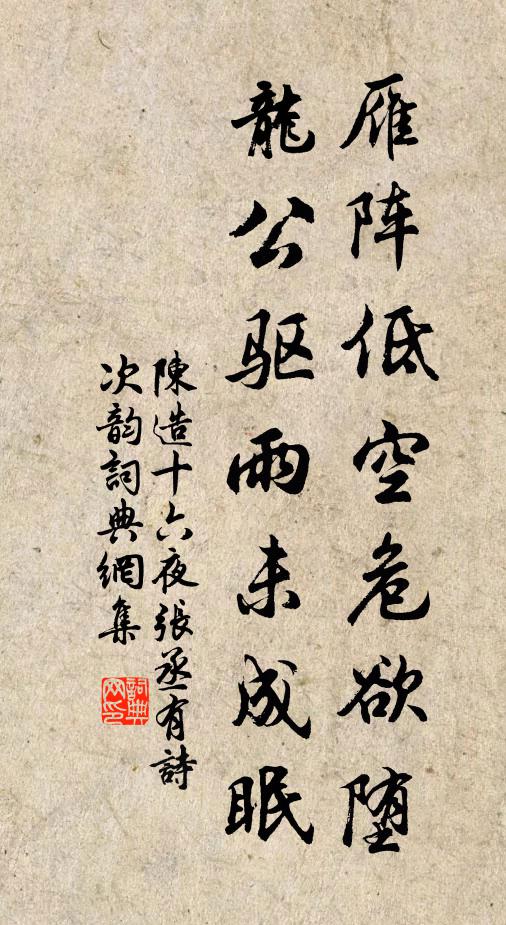 雁阵低空危欲堕
龍公驱雨未成眠
陳造十六夜張丞有詩
次韵詞典網集
詞典
网印